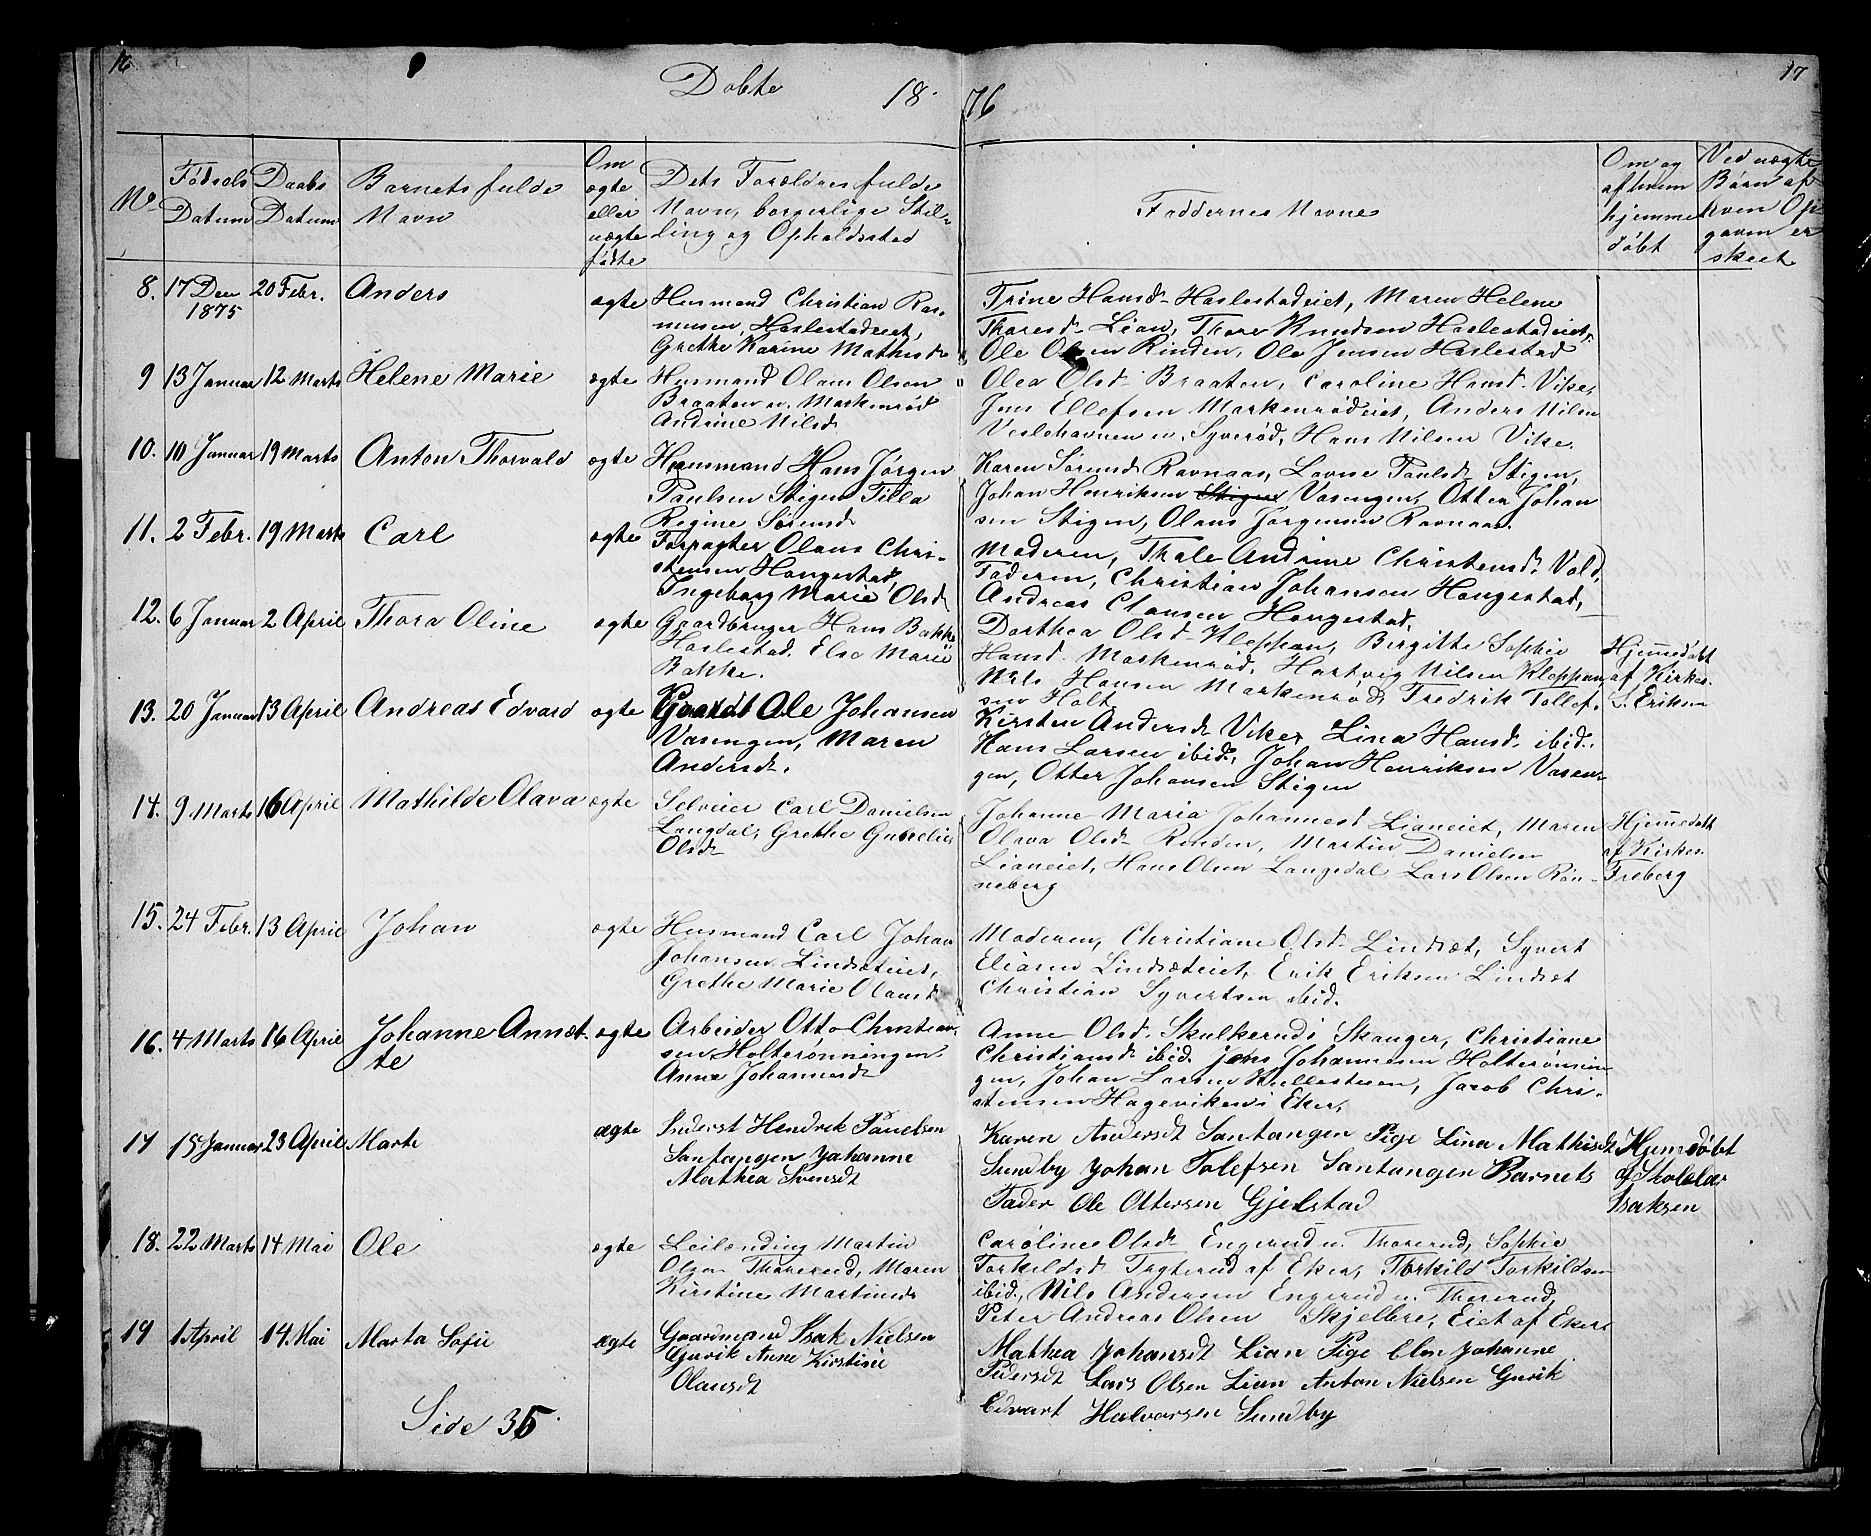 16
17
Døbte 18 76
No
Fødsels Datum
Daabs Datum
Barnets fulde Navn
Om ægte eller uægte fødte
Dets Forældres fulde Navn, borgerlige Stilling og Opholdssted
Faddernes Navne
Om og af hvem hjemmedøbt
Ved uægte Børn af hvem Opgaven er skeet
8. 17 Dec 1875 20 Febr. Anders ægte
Husmand Christian Ras-
musen, Haslestadeiet,
Grethe Karine Mathisdr
Trine Hansdr Haslestadeiet, Maren Helene
Thoresdr Lian, Thore Knudsen Haslestadeiet,
Ole Olsen Rinden, Ole Jensen Haslestad
9 13 Januar 12 Marts Helene Marie ægte
Husmand Olaus Olsen
Braaten u. Markenrød
Andrine Nilsdr
Olea Olsdr Braaten, Caroline Hansdr Vike,
Jens Ellefsen Markenrødeiet, Anders Nilsen
Veslehavnen u. Syverød, Hans Nilsen Vike.
10. 10 Januar 19 Marts Anton Thorvald ægte
Husmand Hans Jørgen
Paulsen Stigen Tilla
Regine Sørensdr
Karen Sørensdr Ravnaas, Lovise Paulsdr Stigen,
Johan Henriksen Stigen Vasengen, Otter Johan
sen Stigen, Olaus Jørgensen Ravnaas.
11. 2 Febr. 19 Marts Carl ægte
Forpagter Olaus Chri-
stensen Hangestad,
Ingeborg Marie Olsdr
Moderen, Thale Andrine Christensdr Vold,
Faderen, Christian Johansen Hangestad,
Andreas Clausen Hangestad.
12. 6 Januar 2 April Thora Oline ægte
Gaardbruger Hans Bakke
Haslestad. Else Marie
Bakke.
Dorthea Olsdr Kleppan, Birgitte Sophie
Hansd. Markenrød, Hartvig Nilsen Kleppan,
Nils Hansen Markenrød, Fredrik Tollef-
sen Holt
Hjemmedøbt
af Kirkes.
S. Eriksen
13. 20 Januar 13 April Andreas Edvard ægte
Gaardbr Ole Johansen
Vasengen, Maren
Andersdr.
Kirsten Andersdr Vike, Lina Hansdr ibid.
Hans Larsen ibid, Johan Henriksen Vasen-
gen, Otter Johansen Stigen
14. 9 Marts 16 April Mathilde Olava ægte
Selveier Carl Danielsen
Langdal, Grethe Gunelie
Olsdr
Johanne Maria Johannesd Lianeiet, Maren
Olava Olsdr Rinden, Martin Danielsen
Lianeiet, Hans Olsen Langedal Lars Olsen Røn-
neberg
Hjemmedøbt
af Kirkes.
Freberg
15. 24 Febr. 13 April Johan ægte
Husmand Carl Johan
Johansen Lindsæteiet,
Grethe Marie Olausd
Moderen, Christiane Olsdr Lindsæt, Syvert
Eliasen Lindsæteiet, Erik Eriksen Lindsæt
Christian Syvertsen ibid.
16. 4 Marts 16 April Johanne Annet-
te ægte
Arbeider Otto Christian-
sen Holterønningen
Anne Johannesdr
Anne Olsdr Skulkerud i Skauger, Christiane
Christiansdr ibid. Jens Johannesen Holterønnin
gen, Johan Larsen Kullesteen, Jacob Chri-
stensen Hageviken i Eker.
17 15 Januar 23 April Marte ægte
Inderst Hendrek Pauelsen
Santangen Johanne
Mathea Svensdt
Karen Andersdt Santangen Pige Lina Mathisdt
Sundby Johan Tolefsen Santangen Barnets
Fader Ole Ottersen Gjelstad
Hjemdøbt
af Skolelær
Isaksen
18. 22 Marts 14 Mai Ole ægte
Leilænding Martin
Olsen Thorerud, Maren
Kirstine Martinsdr
Caroline Olsdr Engerud u. Thorerud, Sophie
Torkildsd Tryterud af Eker, Torkild Torkildsen
ibid., Nils Andersen Engerud u. Thorerud,
Peter Andreas Olsen Skjelbre, Eiet af Eker
19 1 April 14 Mai Marta Sofie ægte
Gaardmand Isak Nielsen
Gurik Anne Kirstine
Olausdt
Mathea Johansdt Lian Pige Elen Johanne
Pedersdt Lars Olsen Lian Anton Nielsen Gurik
Edvart Halvorsen Sundby
Side 35